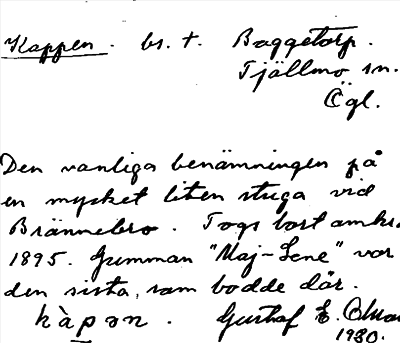 Kappen. bs. t. Baggetorp.
Tjällmo sn.
Ögl.
Den vanliga benämningen på
en mycket liten stuga vid
Brännebro. Togs bort omkr.
1895. Gumman "Maj-Lene" var
den sista, som bodde där.
kàpən. Gustaf E.
1930.